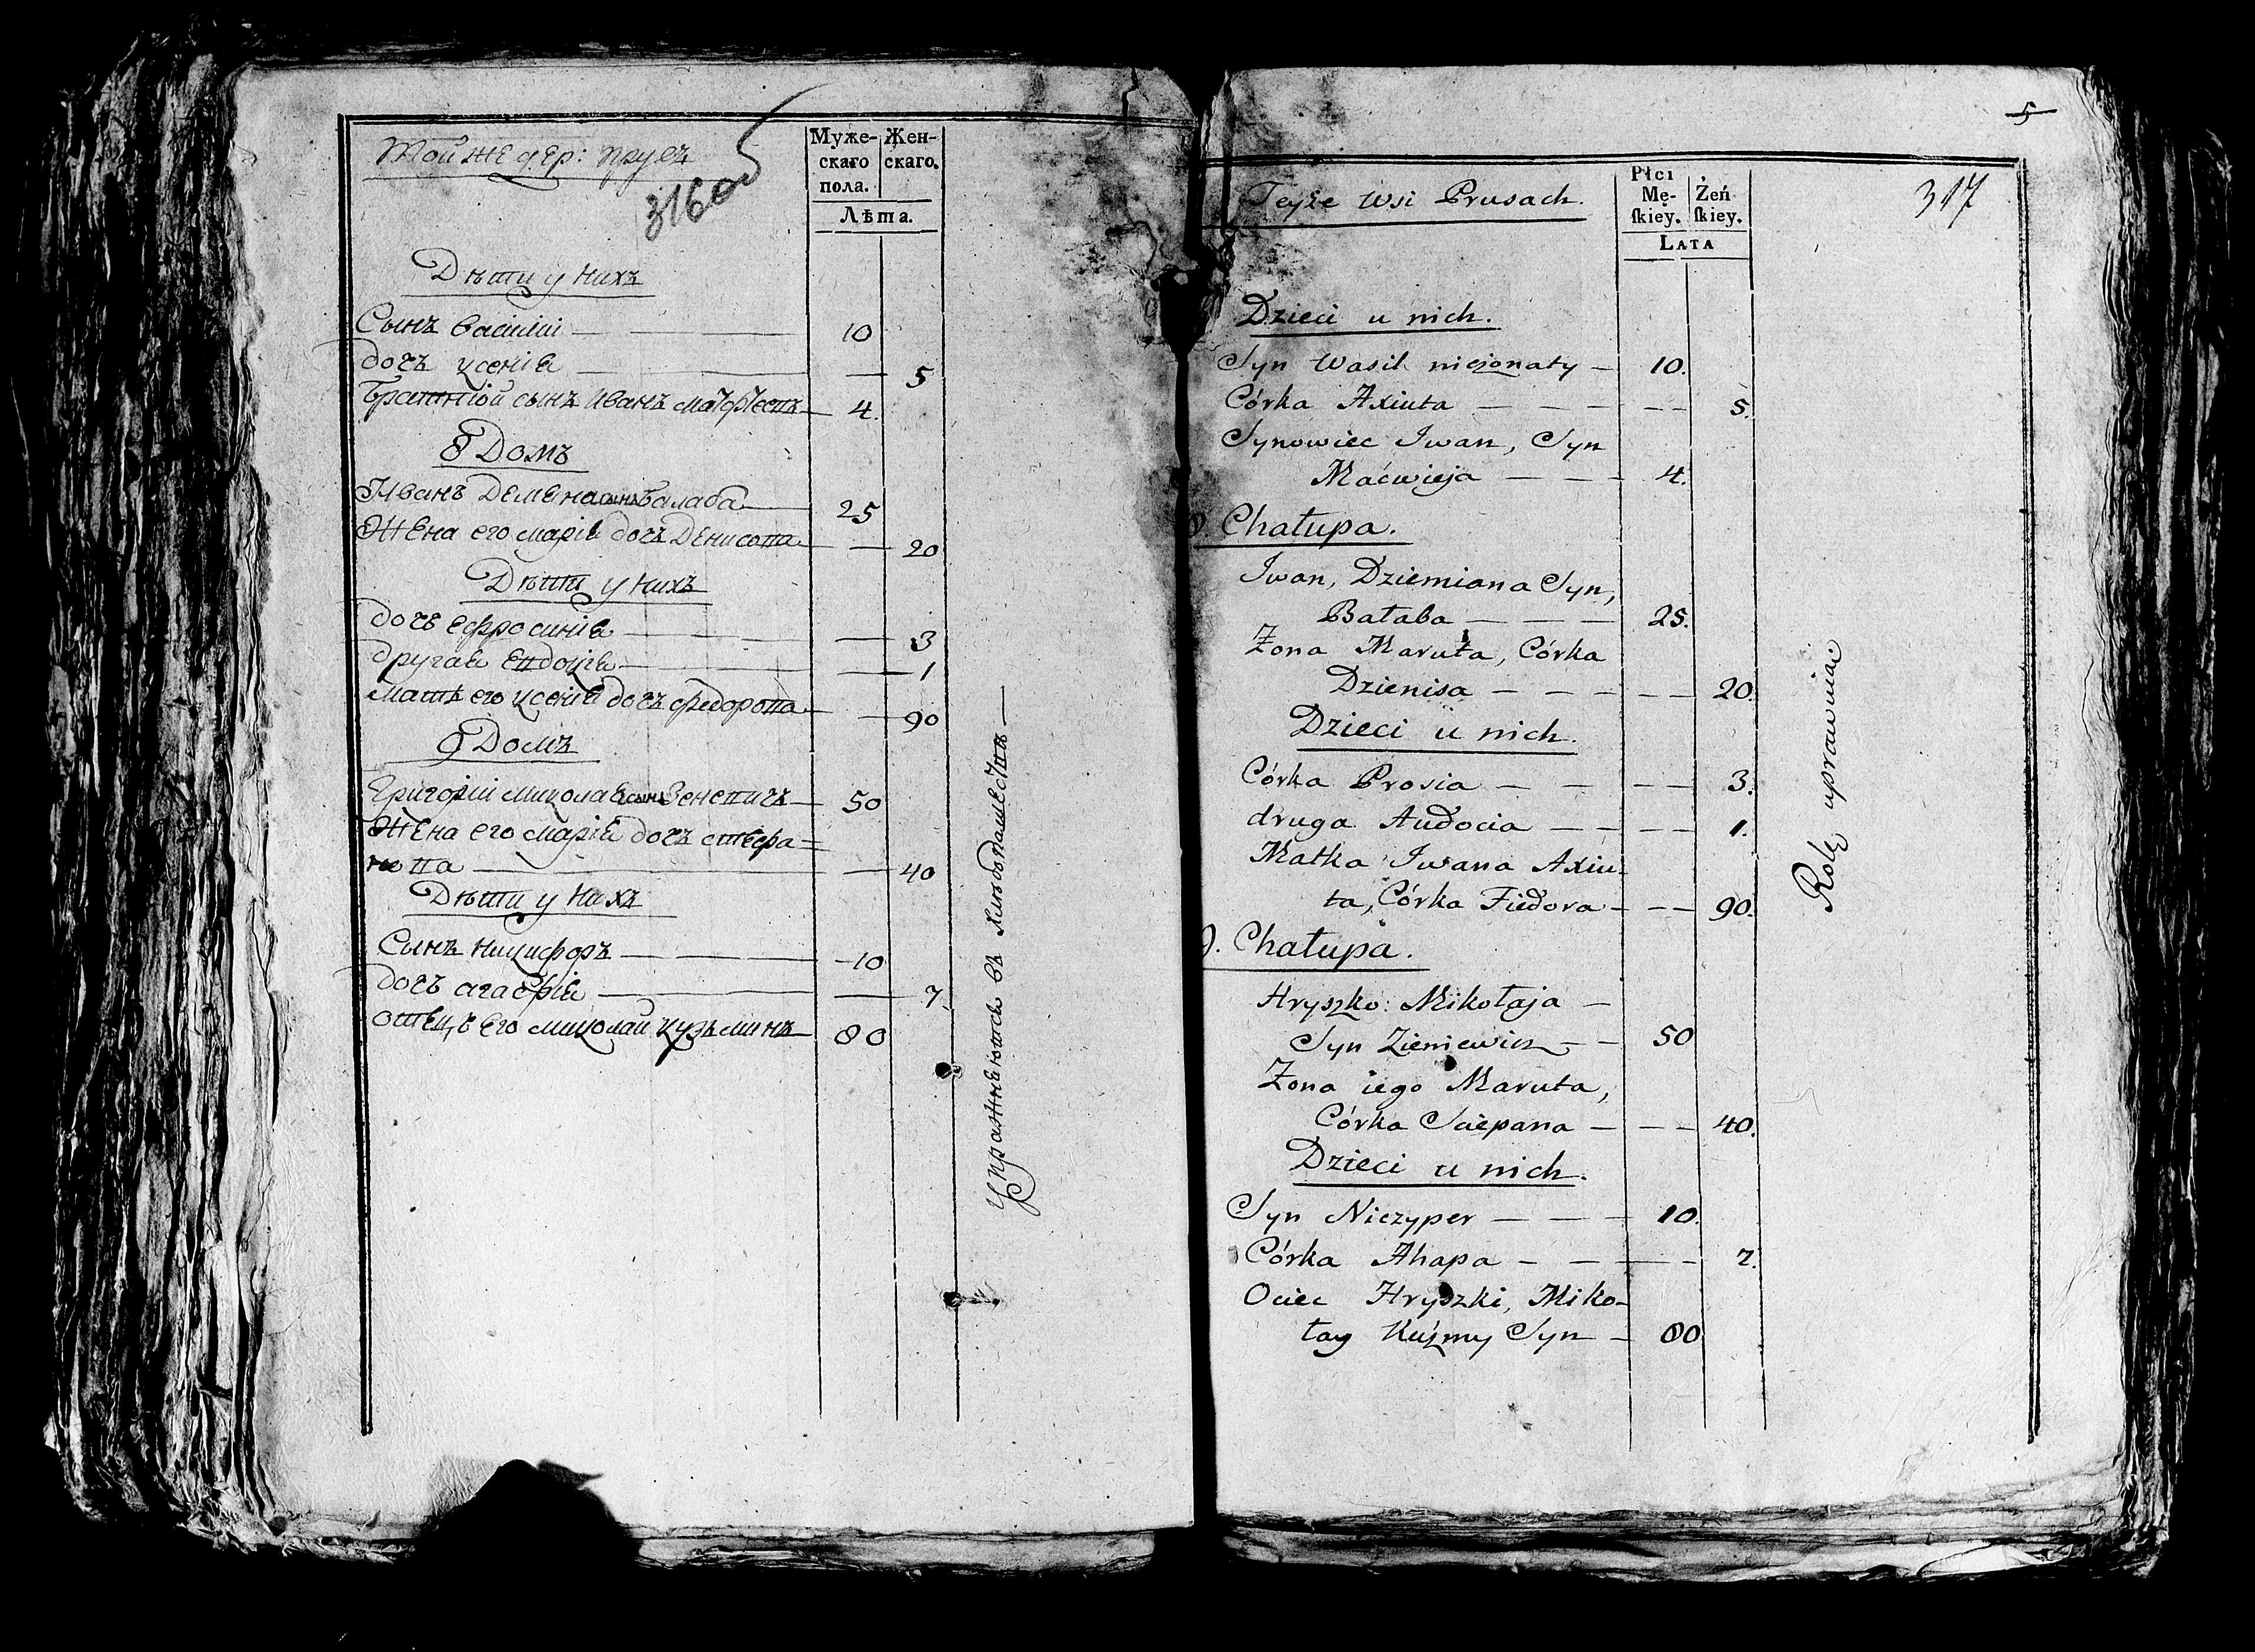 Той же дер: Прусъ
316 об
Муже-
скаго
пола.
Жен-
скаго.
Лѣта.
Дѣти у нихъ
Сынъ Василій — 10
дочъ Ксенія — 5
Братній сынъ Иванъ — 4
8 Домъ
Иванъ Демяна сынъ Балаба — 25
Жена его Марія дочъ Денисова — 20
Дѣти у нихъ
дочь Ефросинія — 3
другая Евдокія — 1
мать его Ксенія дочъ Федорова — 90
9 Домъ
Григорій Микола сынъ Зеневичъ — 50
Жена его Марія дочъ Стефа=
нова — 40
Дѣти у нихъ
Сынъ Никифоръ — 10
дочъ Агафія — 7
отецъ его Миколай Кузьминъ — 80
Упражняются въ хлѣбопашествѣ —
5
317
Teyże Wsi Prusach.
Płci
Mę-
ſkiey.
Żeń
ſkiey.
Lata
Dzieci u nich.
Syn Wasil nieżonaty — 10.
Córka Axiuta — 5.
Synowiec Iwan, Syn
Maćwieja — 4.
Chałupa.
Iwan, Dziemiana Syn,
Bałaba — 25.
Żona Maruta, Córka
Dzienisa — 20.
Dzieci u nich.
Córka Prosia — 3.
druga Audocia — 1.
Matka Iwana Axiu-
ta, Córka Fiedora — 90.
9. Chałupa.
Hryszko Mikołaja —
Syn Zieniewicz — 50
Żona iego Maruta,
Córka Sciepana — 40.
Dzieci u nich.
Syn Niczyper — 10.
Córka Ahapa — 7.
Ociec Hryszki, Miko-
łay Kuźmy Syn — 80
Rolę uprawniaią